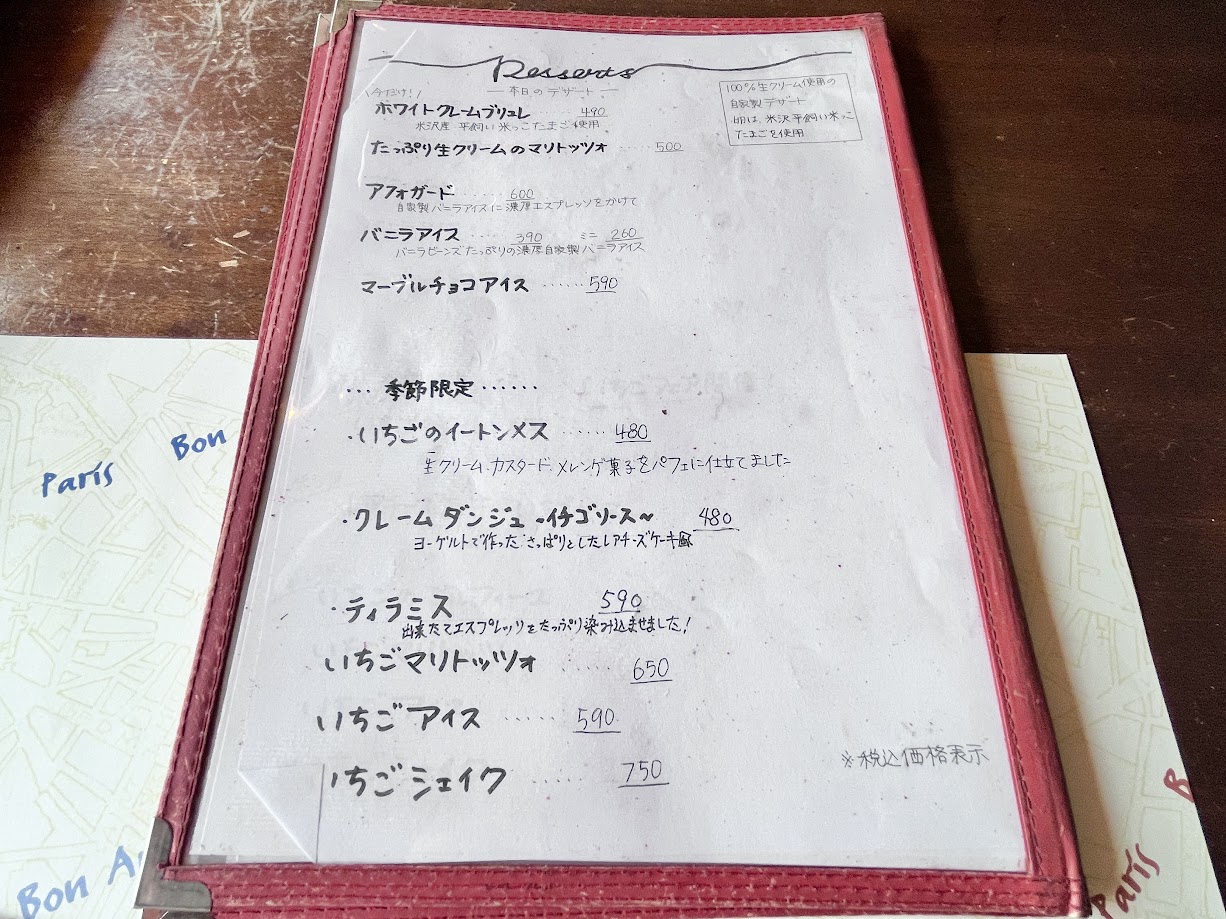 Desserts
― 本日のデザート ―
\今だけ!/
ホワイトクレームブリュレ 490
米沢産 平飼い米っこたまご使用
たっぷり生クリームのマリトッツォ ‥‥‥ 500
100%生クリーム使用の
自家製デザート
卵は、米沢平飼い米っこ
たまごを使用
アフォガード ‥‥‥ 600
自家製バニラアイスに濃厚エスプレッソをかけて
バニラアイス ‥‥ 390 ミニ 260
バニラビーンズたっぷりの濃厚自家製バニラアイス
マーブルチョコアイス ‥‥‥ 590
… 季節限定 ‥‥‥
・いちごのイートンメス ‥‥‥ 480
生クリーム、カスタード、メレンゲ菓子をパフェに仕立てました
・クレームダンジュ ~イチゴソース~ 480
ヨーグルトで作った さっぱりとしたレアチーズケーキ
・ティラミス 590
出来たてエスプレッソをたっぷり染み込ませました!
いちごマリトッツォ ‥‥‥ 650
いちごアイス ‥‥‥ 590
いちごシェイク ‥‥‥ 750
※税込価格表示
Paris
Bon
Bon A
B
Paris